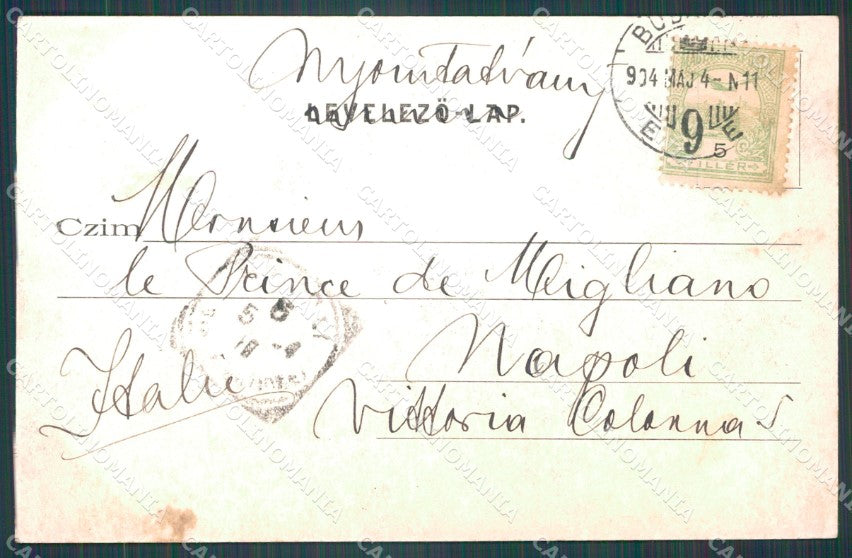 Nyomtatvány
LEVELEZŐ-LAP.
904 MÁJ 4 - N 11
9
5
FILLÉR
Czim Monsieur
le Prince de Migliano
Napoli
Italie
Vittoria Colonna 5
CARTOLINOMANIA